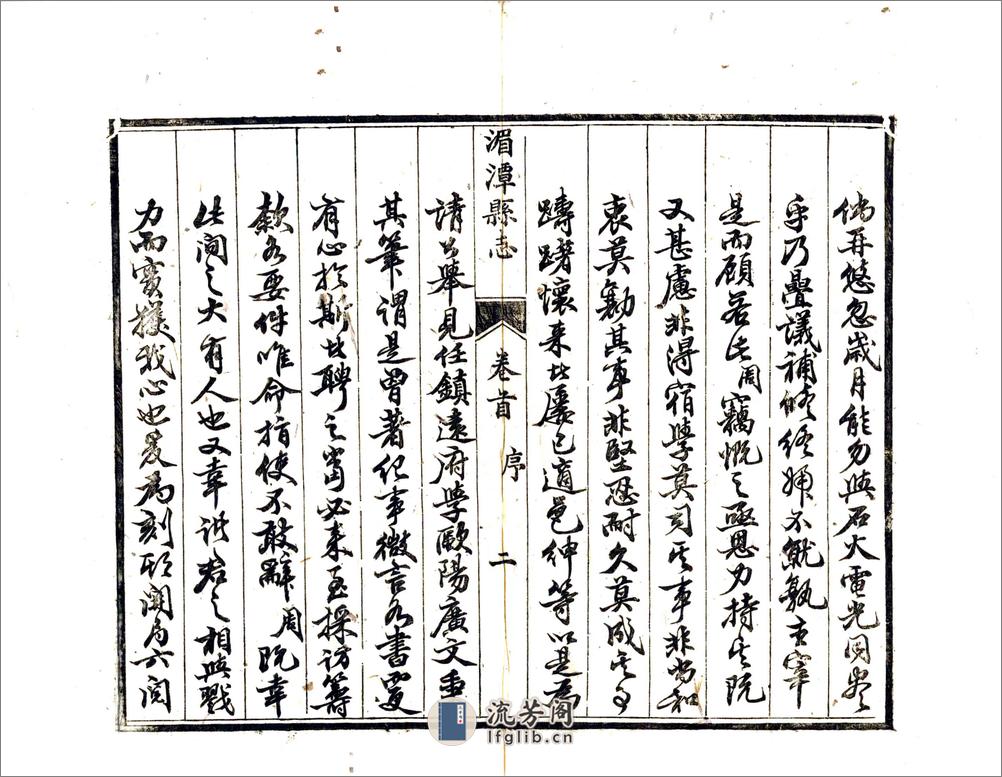 倘再悠忽歲月能勿與石火電光同盡
乎乃疊議補修終歸不就孰主宰
是而顧若此周竊慨之亟思力持其阮
又甚慮非得宿學莫司其事非尚和
衷莫勷其事非堅恐耐久莫成其事
躊躇懷來者屢已適邑紳等以是為
請公舉見任鎮遠府學歐陽廣文重
其筆謂是曾著紀事微言各書實
有心於斯者聘之當必來至採訪籌
款各要件唯命指使不敢辭周既幸
此間之大有人也又幸諸君之相與戮
力而實獲我心也爰為刻期開局六閱
湄潭縣志
卷首
序
二
流芳閣
lfglib.cn